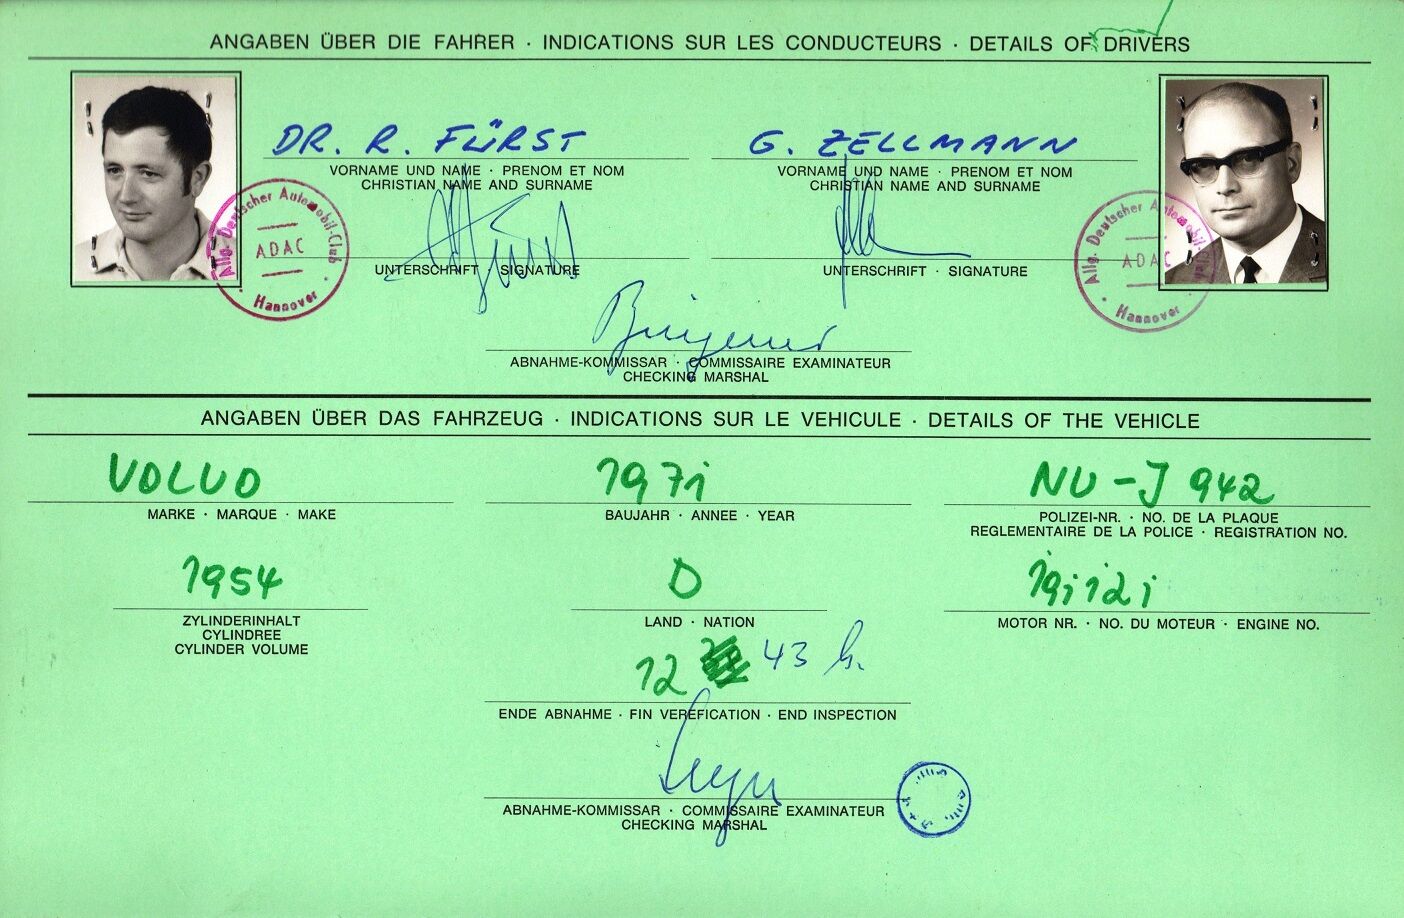 ANGABEN ÜBER DIE FAHRER · INDICATIONS SUR LES CONDUCTEURS · DETAILS OF DRIVERS
DR. R. FÜRST
G. ZELLMANN
VORNAME UND NAME · PRENOM ET NOM
CHRISTIAN NAME AND SURNAME
VORNAME UND NAME · PRENOM ET NOM
CHRISTIAN NAME AND SURNAME
Allg. Deutscher Automobil-Club
ADAC
Hannover
Allg. Deutscher Automobil-Club
ADAC
Hannover
UNTERSCHRIFT · SIGNATURE
UNTERSCHRIFT · SIGNATURE
ABNAHME-KOMMISSAR · COMMISSAIRE EXAMINATEUR
CHECKING MARSHAL
ANGABEN ÜBER DAS FAHRZEUG · INDICATIONS SUR LE VEHICULE · DETAILS OF THE VEHICLE
VOLVO
1971
NU-J 942
MARKE · MARQUE · MAKE
BAUJAHR · ANNEE · YEAR
POLIZEI-NR. · NO. DE LA PLAQUE
REGLEMENTAIRE DE LA POLICE · REGISTRATION NO.
1954
D
191121
ZYLINDERINHALT
CYLINDREE
CYLINDER VOLUME
LAND · NATION
MOTOR NR. · NO. DU MOTEUR · ENGINE NO.
12 43 h.
ENDE ABNAHME · FIN VEREFICATION · END INSPECTION
ABNAHME-KOMMISSAR · COMMISSAIRE EXAMINATEUR
CHECKING MARSHAL